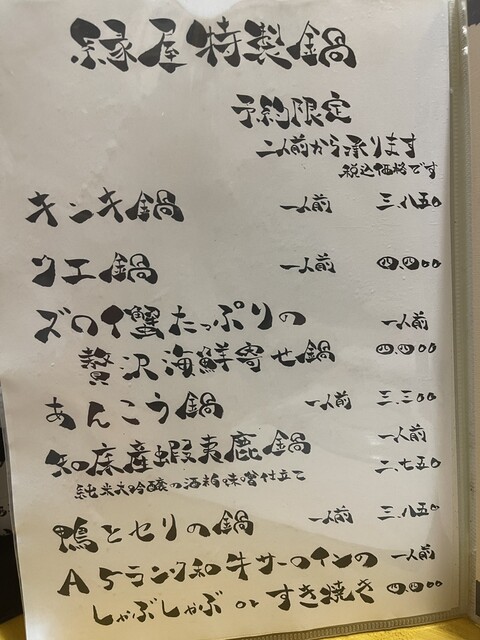 縁屋特製鍋
予約限定
二人前から承ります
税込価格です
キンキ鍋 一人前 三、八五〇
クエ鍋 一人前 四、四〇〇
ズワイ蟹たっぷりの 一人前
贅沢海鮮寄せ鍋 四、四〇〇
あんこう鍋 一人前 三、三〇〇
知床産蝦夷鹿鍋 一人前
純米大吟醸の酒粕味噌仕立て 二、七五〇
鴨とセリの鍋 一人前 三、八五〇
A5ランク和牛サーロインの 一人前
しゃぶしゃぶ or すき焼き 四、四〇〇